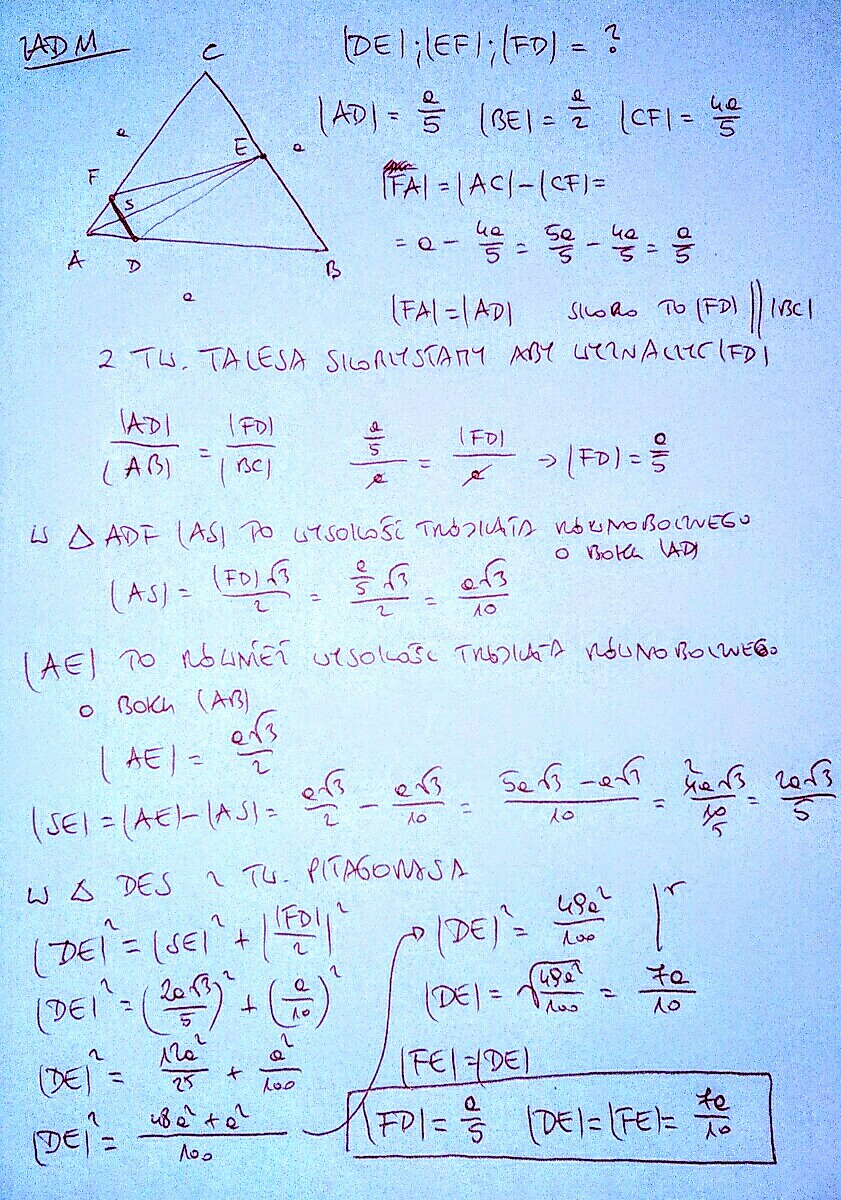 ZADM |DE|; |EF|; |FD| = ?
C
|AD| = a/5 |BE| = a/2 |CF| = 4a/5
a
E a
F
S
A
D
B
a
|FA| = |AC| - |CF| =
= a - 4a/5 = 5a/5 - 4a/5 = a/5
|FA| = |AD| SKORO TO |FD| || |BC|
Z TW. TALESA SKORZYSTAMY ABY WYZNACZYĆ |FD|
|AD|/|AB| = |FD|/|BC| (a/5)/a = |FD|/a → |FD| = a/5
W △ ADF |AS| TO WYSOKOŚĆ TRÓJKĄTA RÓWNOBOCZNEGO
O BOKU |AD|
|AS| = |FD|√3/2 = (a/5 √3)/2 = a√3/10
|AE| TO RÓWNIEŻ WYSOKOŚĆ TRÓJKĄTA RÓWNOBOCZNEGO
O BOKU |AB|
|AE| = a√3/2
|SE| = |AE| - |AS| = a√3/2 - a√3/10 = (5a√3 - a√3)/10 = 4a√3/10 = 2a√3/5
W △ DES Z TW. PITAGORASA
|DE|² = |SE|² + ||FD|/2|²
|DE|² = (2a√3/5)² + (a/10)²
|DE|² = 12a²/25 + a²/100
|DE|² = (48a² + a²)/100
→ |DE|² = 49a²/100 |√
|DE| = √(49a²/100) = 7a/10
|FE| = |DE|
|FD| = a/5 |DE| = |FE| = 7a/10